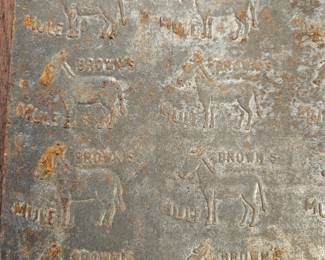 MULE MULE
BROWN'S BROWN'S
MULE MULE
BROWN'S BROWN'S
MULE MULE
BROWN'S BROWN'S